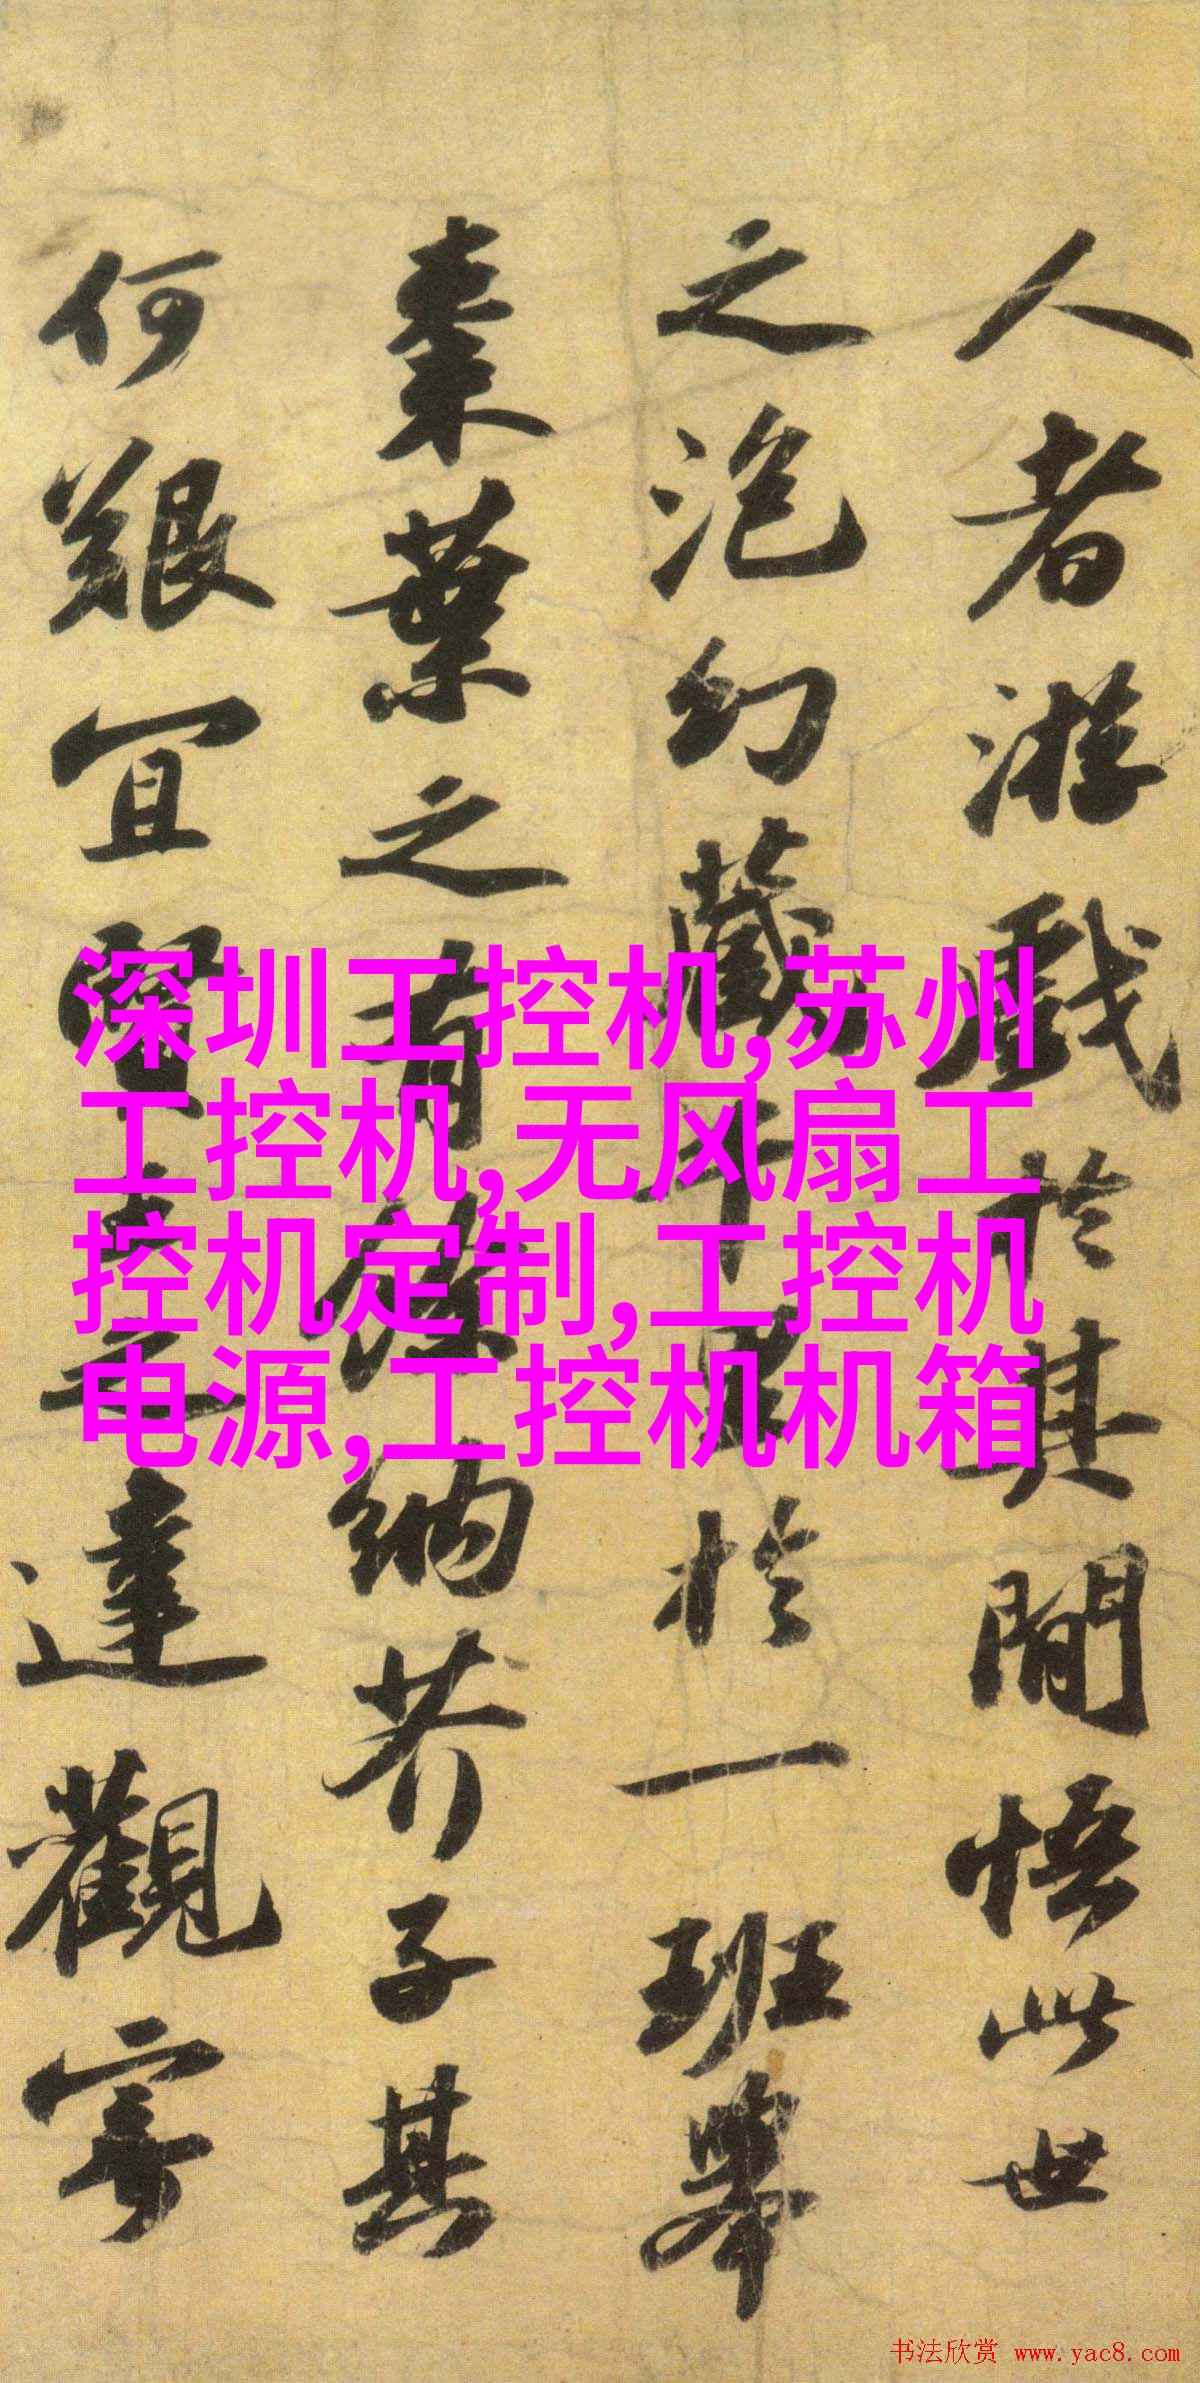 人者游戲於其間悟此世
之泡幻藏千里於一班舉
棗葉之有餘納芥子其
何艱宜賢王之達觀寄
深圳工控机,苏州
工控机,无风扇工
控机定制,工控机
电源,工控机机箱
书法欣赏 www.yac8.com